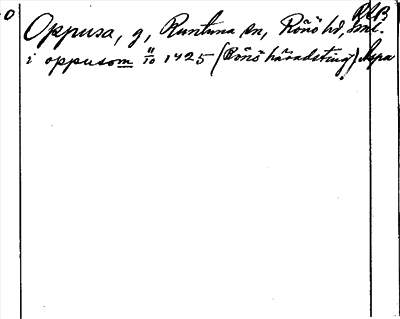 RAB
O Oppusa, g, Runtuna sn, Rönö hd, Sml.
i oppusom 11/10 1425 (Rönö häradsting) Aspa